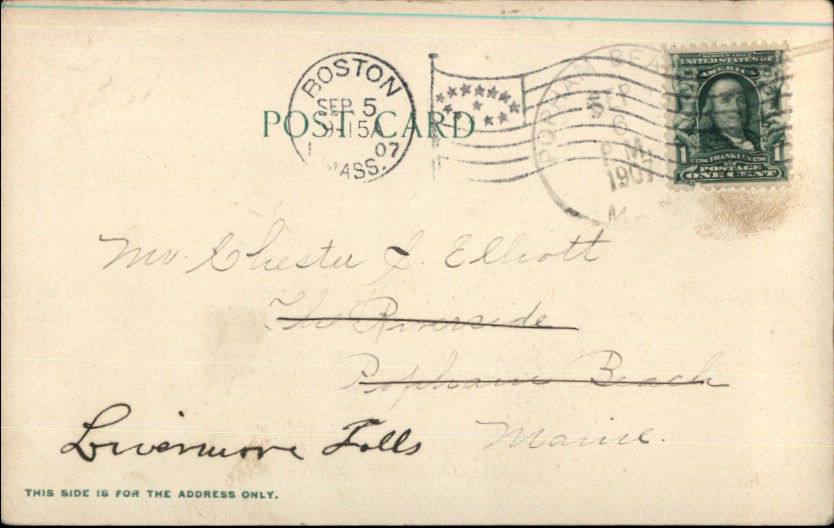 BOSTON
SEP 5
9-15A
07
MASS.
POST CARD
POPHAM BEA
SEP
6
P.M.
1907
SERIES 1902
UNITED STATES OF
AMERICA
1 FRANKLIN 1
POSTAGE
ONE CENT
Mr. Chester L. Elliott
The Riverside
Popham Beach
Livermore Falls Maine.
THIS SIDE IS FOR THE ADDRESS ONLY.